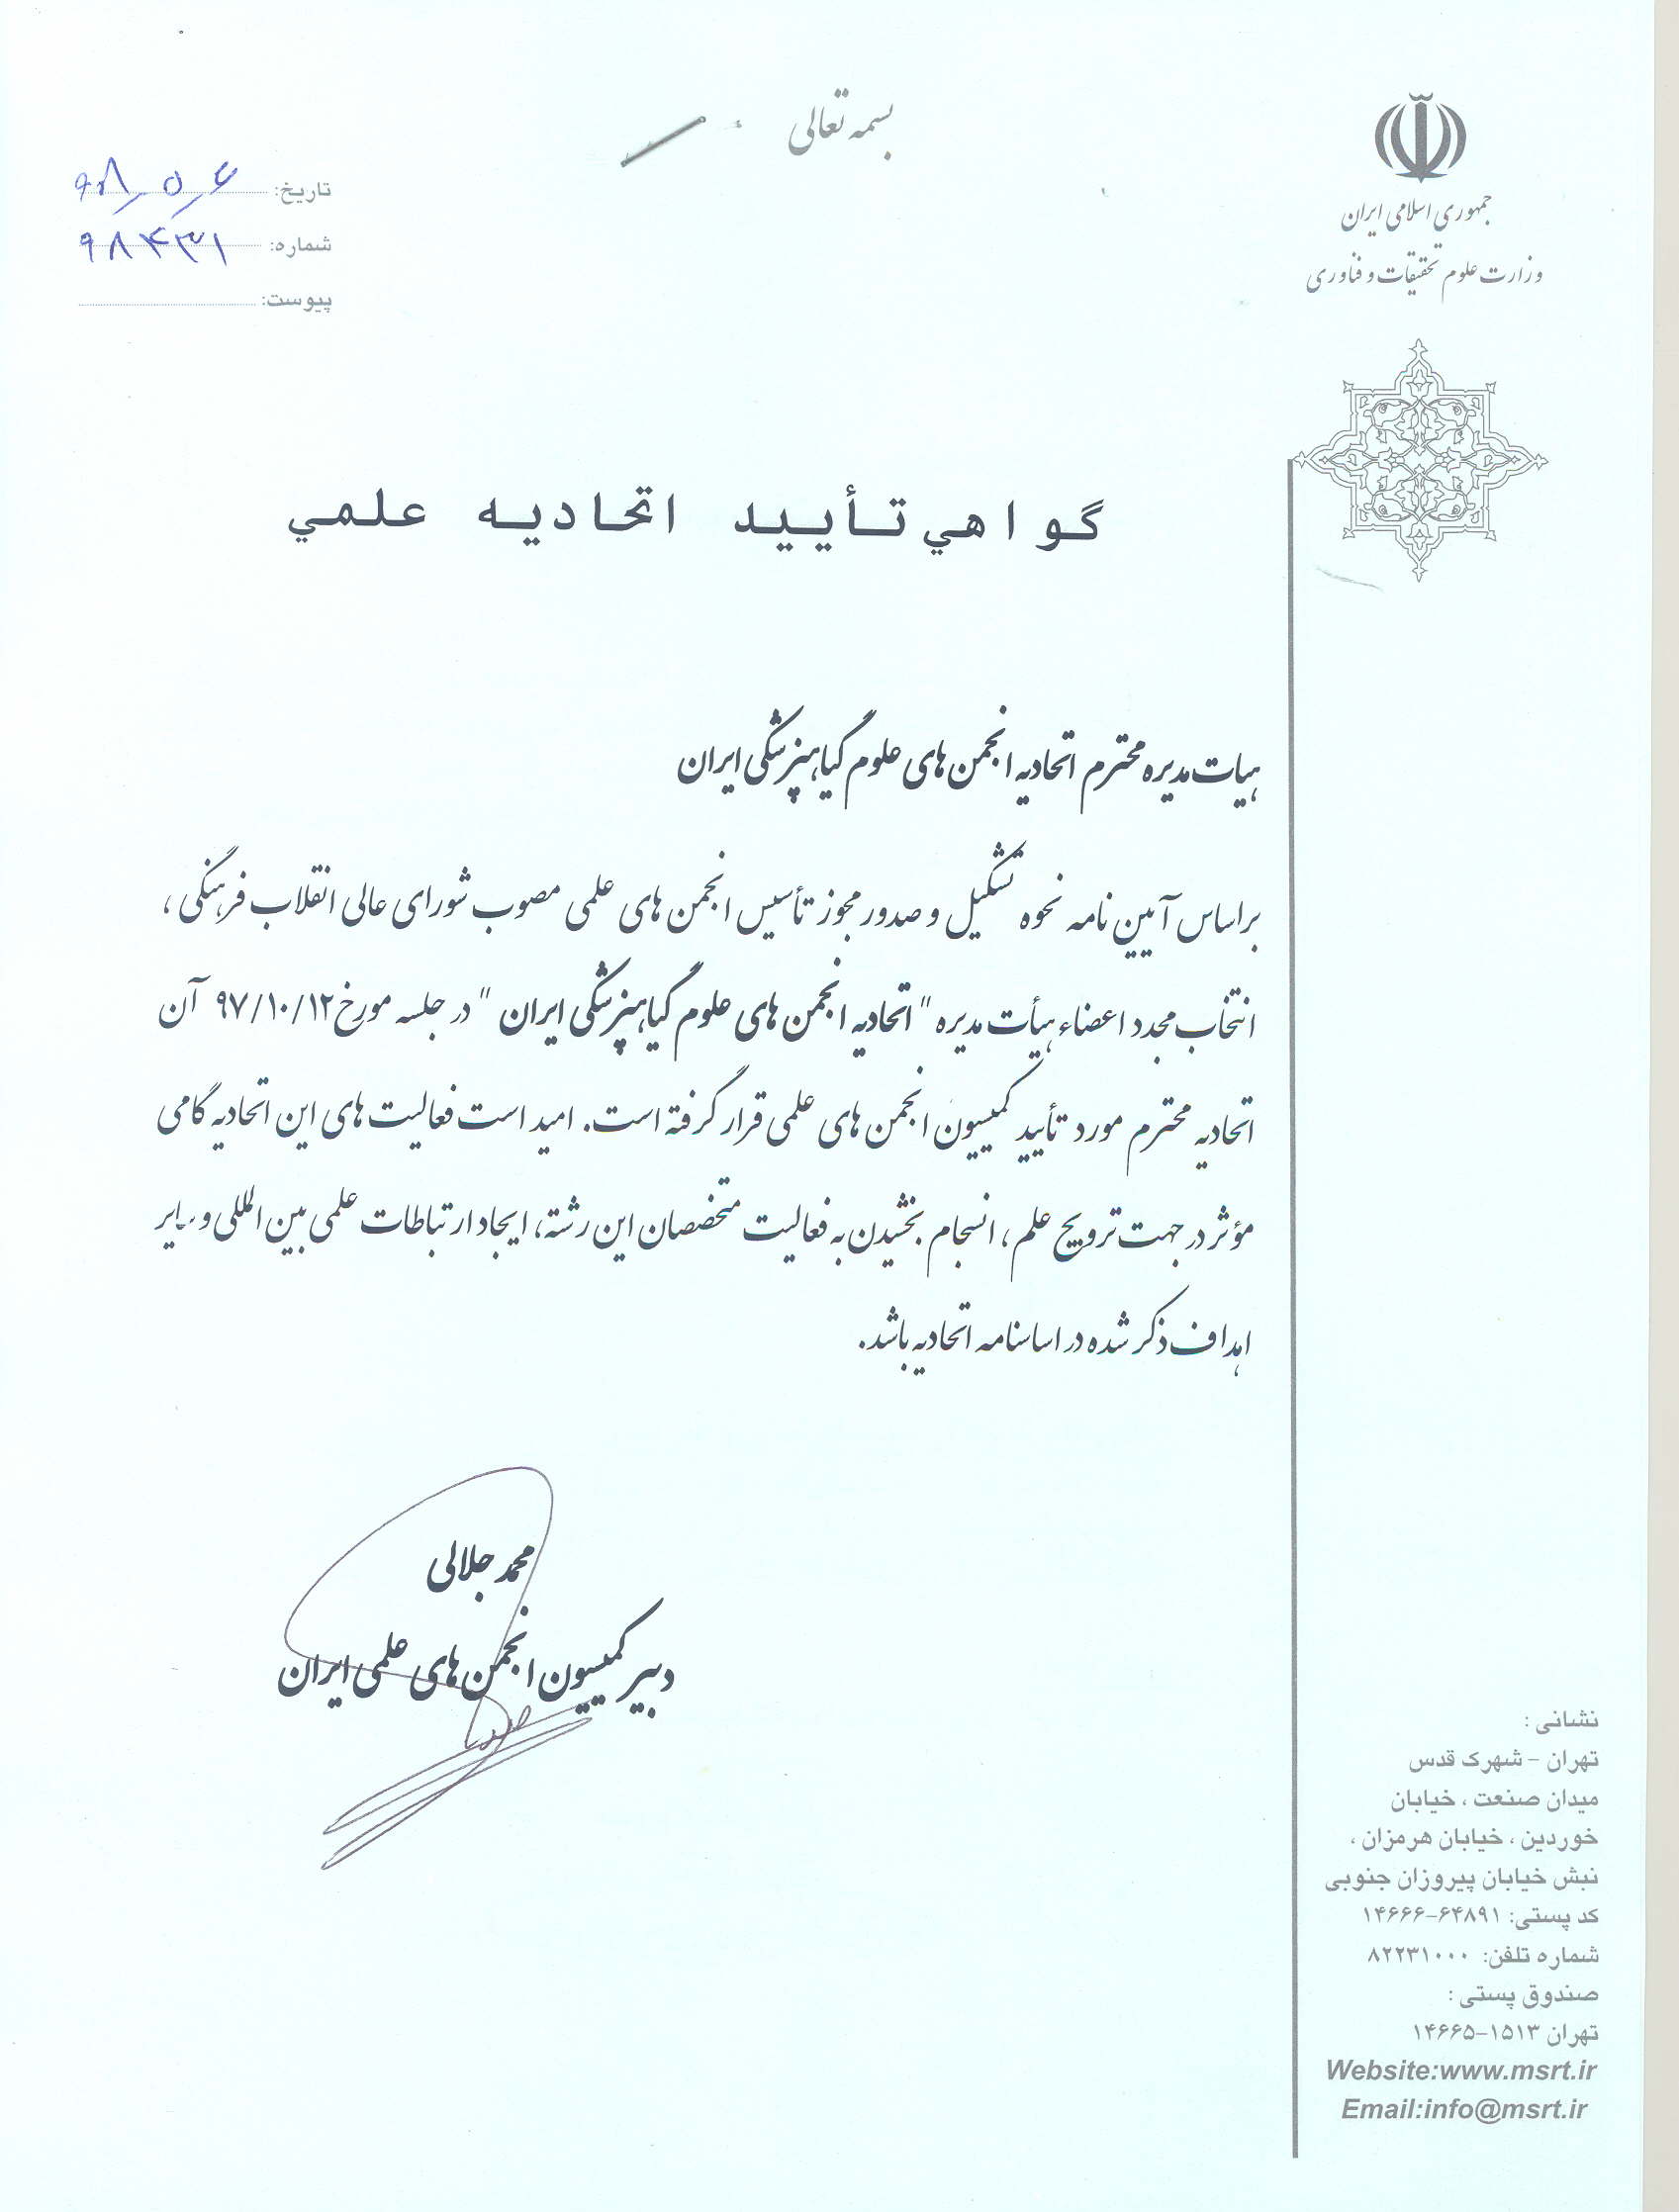 بسمه تعالی
جمهوری اسلامی ایران
وزارت علوم تحقیقات و فناوری
تاریخ: ۹۸/۵/۶
شماره: ۹۸۴۳۱
پیوست:
گواهي تأييد اتحاديه علمي
هیات مدیره محترم اتحادیه انجمن های علوم گیاهپزشکی ایران
براساس آیین نامه نحوه تشکیل و صدور مجوز تأسیس انجمن های علمی مصوب شورای عالی انقلاب فرهنگی ،
انتخاب مجدد اعضاء هیأت مدیره "اتحادیه انجمن های علوم گیاهپزشکی ایران " در جلسه مورخ ۹۷/۱۰/۱۲ آن
اتحادیه محترم مورد تأیید کمیسیون انجمن های علمی قرار گرفته است. امید است فعالیت های این اتحادیه گامی
مؤثر در جهت ترویج علم ، انسجام بخشیدن به فعالیت متخصصان این رشته، ایجاد ارتباطات علمی بین المللی و سایر
اهداف ذکر شده در اساسنامه اتحادیه باشد.
محمد جلالی
دبیر کمیسیون انجمن های علمی ایران
نشانی :
تهران - شهرک قدس
میدان صنعت ، خیابان
خوردین ، خیابان هرمزان ،
نبش خیابان پیروزان جنوبی
کد پستی: ۶۴۸۹۱-۱۴۶۶۶
شماره تلفن: ۸۲۲۳۱۰۰۰
صندوق پستی :
تهران ۱۵۱۳-۱۴۶۶۵
Website:www.msrt.ir
Email:info@msrt.ir